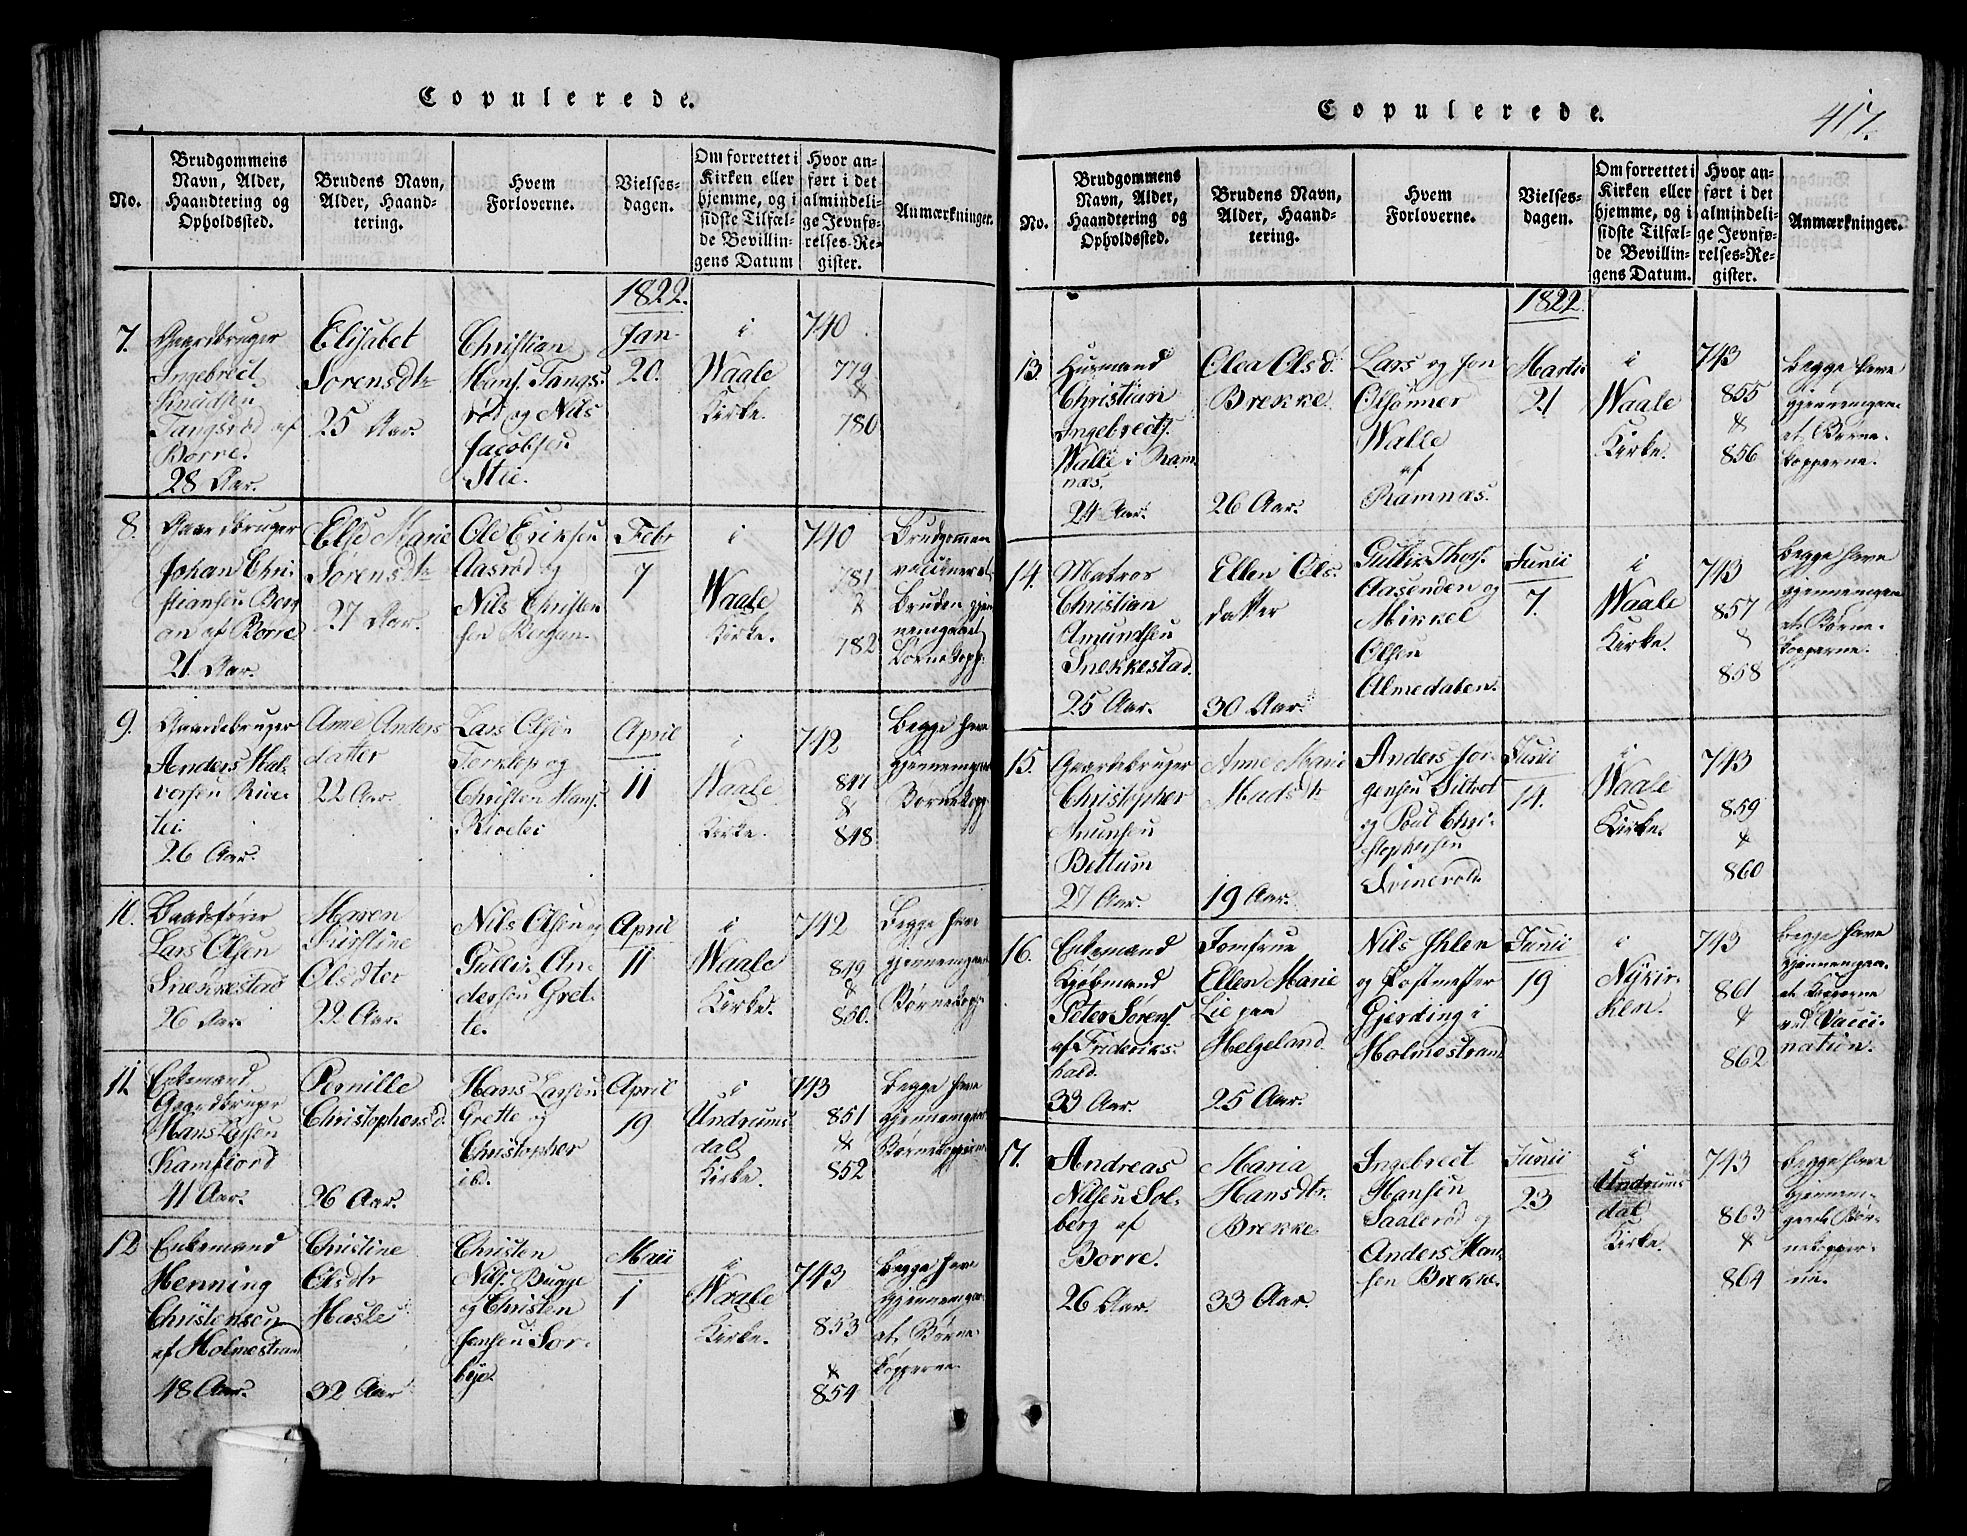 Copulerede.
No.
Brudgommens
Navn, Alder,
Haandtering og
Opholdssted.
Brudens Navn,
Alder, Haand-
tering.
Hvem
Forloverne.
Vielses-
dagen.
Om forrettet i
Kirken eller
hjemme, og i
sidste Tilfæl-
de Bevillin-
gens Datum
Hvor an-
ført i det
almindeli-
ge Jevnfø-
relses-Re-
gister.
Anmærkninger.
1822.
7.
Gaardbruger
Ingebrect
Knudsen
Tangsrød af
Borre.
28 Aar.
Elisabet
Sorensdtr
25 Aar.
Christian
Hans. Tangs.
rød og Nils
Jacobsen
Stie.
Jan
20.
i
Waale
Kirke.
740
779
&
780
8.
Gaardbruger
Johan Chri-
stiansen
af Borre
21 Aar.
Else Marie
Sørensdtr
27 Aar.
Ole Eriksen
Aasrød og
Nils Christen
sen
Febr
7
i
Waale
Kirke.
740
781
&
782
Brudgommen
vaccineret
Bruden gjen
nemgaaet
Børnekopp.
9.
Gaardebruger
Anders Hal-
vorsen
26 Aar.
Anne Anders
datter
22 Aar.
Lars Olsen
og
Christen Hans.
April
11
i
Waale
Kirke.
742
847
&
848
Begge have
gjennemgaa
Børnekopp
10.
Baadsfører
Lars Olsen
Snekkestad
26 Aar.
Maren
Kirstine
Olsdter
22 Aar.
Nils Olsen og
Gulle An-
dersen Gret-
te.
April
11
i
Waale
Kirke.
742
849
&
850.
Begge have
gjennemgaa
Børnekopp
11.
Enkemand
Gaardbruger
Hans
Kamfiord
41 Aar.
Pernille
Christophersd.
26 Aar.
Hans Larsen
Grette og
Christopher
ibd.
April
19
i
Undrums
dals
Kirke.
743
851
&
852
Begge have
gjennemgaa
Børnekopperne
12
Enkemand
Henning
Christensen
af Holmestrand
48 Aar.
Christine
Olsdtr
Hasle
32 Aar
Christen
Nils. Bugge
og Christen
Jensen Sor-
bye.
Maii
1
i
Waale
Kirke.
743
853
&
854
Begge have
gjennemgaa-
et Børne-
kopperne
Copulerede.
417.
No.
Brudgommens
Navn, Alder,
Haandtering og
Opholdssted.
Brudens Navn,
Alder, Haand-
tering.
Hvem
Forloverne.
Vielses-
dagen.
Om forrettet i
Kirken eller
hjemme, og i
sidste Tilfæl-
de Bevillin-
gens Datum.
Hvor an-
ført i det
almindeli-
ge Jevnfø-
relses-Re-
gister.
Anmærkninger.
1822.
13.
Husmand
Christian
Ingebrects.
Walle i Ram
næs.
24 Aar.
Olea Olsd.
Brekke.
26 Aar.
Lars og Jon
Olsønner
Walle
af
Ramnæs.
Martii
21
i
Waale
Kirke.
743
855
&
856
Begge have
gjennemgaa-
et Børne-
kopperne.
14.
Matros
Christian
Amundsen
Snekkestad.
25 Aar.
Ellen Ols.
datter
30 Aar.
Gullik Thors.
Aasenden og
Mikkel
Olsen
Almedalen.
Junii
7.
i
Waale
Kirke.
743
857
&
858
Begge have
gjennemgaa
et Børne-
kopperne.
15.
Gaardebruger
Christopher
Bettum
27 Aar.
Anne Marie
Madsdtr
19 Aar.
Anders Jør-
gensen
og Poul Chri-
stophersen
Svinevold.
Junii
14.
i
Waale
Kirke.
743
859
&
860
16.
Enkemand
Kjøbmand
Peter Sørens.
af Frideriks-
hald.
33 Aar.
Jomfrue
Ellen Marie
Lie paa
Helgeland
25 Aar.
Nils Ihlen
og Postmester
Gjerding i
Holmestrand
Junii
19
i
Nykir-
ken.
743
861
&
862
Begge have
gjennemgaa-
et Kopperne
ved Vacci-
nation.
17.
Andreas
Nilsen Sol-
berg af
Borre.
26 Aar.
Maria
Hansdtr.
Brekke
33 Aar.
Ingebrect
Hansen
Saalerød og
Anders Han-
sen Brekke.
Junii
23
i
Undrums
dal
Kirke.
743
863
&
864
Begge have
gjennem-
gaaet Bør-
nekopper-
ne.